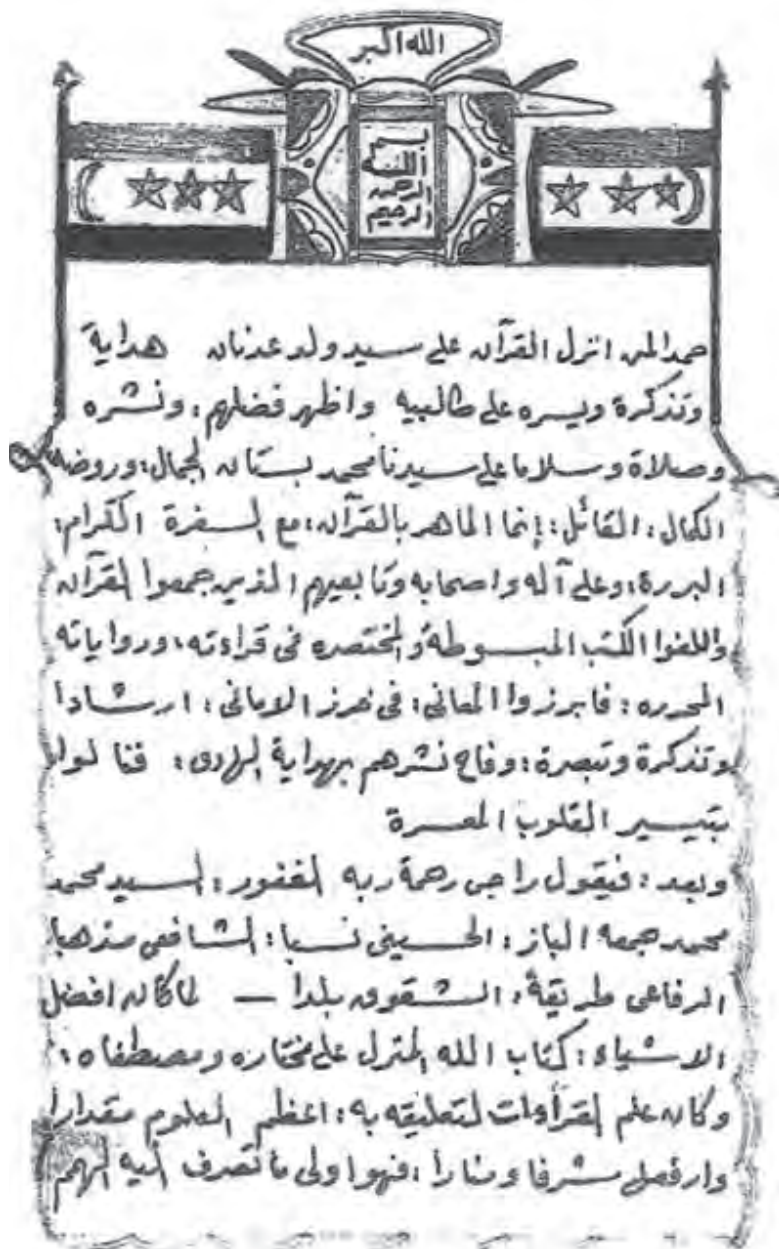 الله اكبر
بسم
الله
الرحمن
الرحيم
حمدا لمن انزل القرآن على سيد ولد عدنان هداية
وتذكرة ويسره على طالبيه واظهر فضلهم، ونشره
وصلاة وسلاما على سيدنا محمد بستان الجمال؛ وروضة
الكمال؛ القائل؛ إنما الماهر بالقرآن؛ مع السفرة الكرام؛
البررة؛ وعلى آله واصحابه وتابعيهم الذين جمعوا القرآن
واللفوا الكتب المبسوطة والمختصره فى قراءته، ورواياته
المحرره؛ فابرزوا المعانى؛ فى حرز الامانى؛ ارشادا
وتذكرة وتبصرة؛ وفاح نشرهم بهداية الهادى؛ فنالوا
بتيسير القلوب المعسرة
وبعد؛ فيقول راجى رحمة ربه الغفور؛ السيد محمد
محمد جمعه الباز؛ الحسينى نسبا؛ الشافعى مذهبا
الرفاعى طريقة، بلدا — لما كان افضل
الاشياء؛ كتاب الله المنزل على مختاره ومصطفاه؛
وكان علم القرأءات لتعليقه به؛ اعظم العلوم مقدارا
شرفا ومنارا؛ فهو اولى ما تصرف اليه الهمم